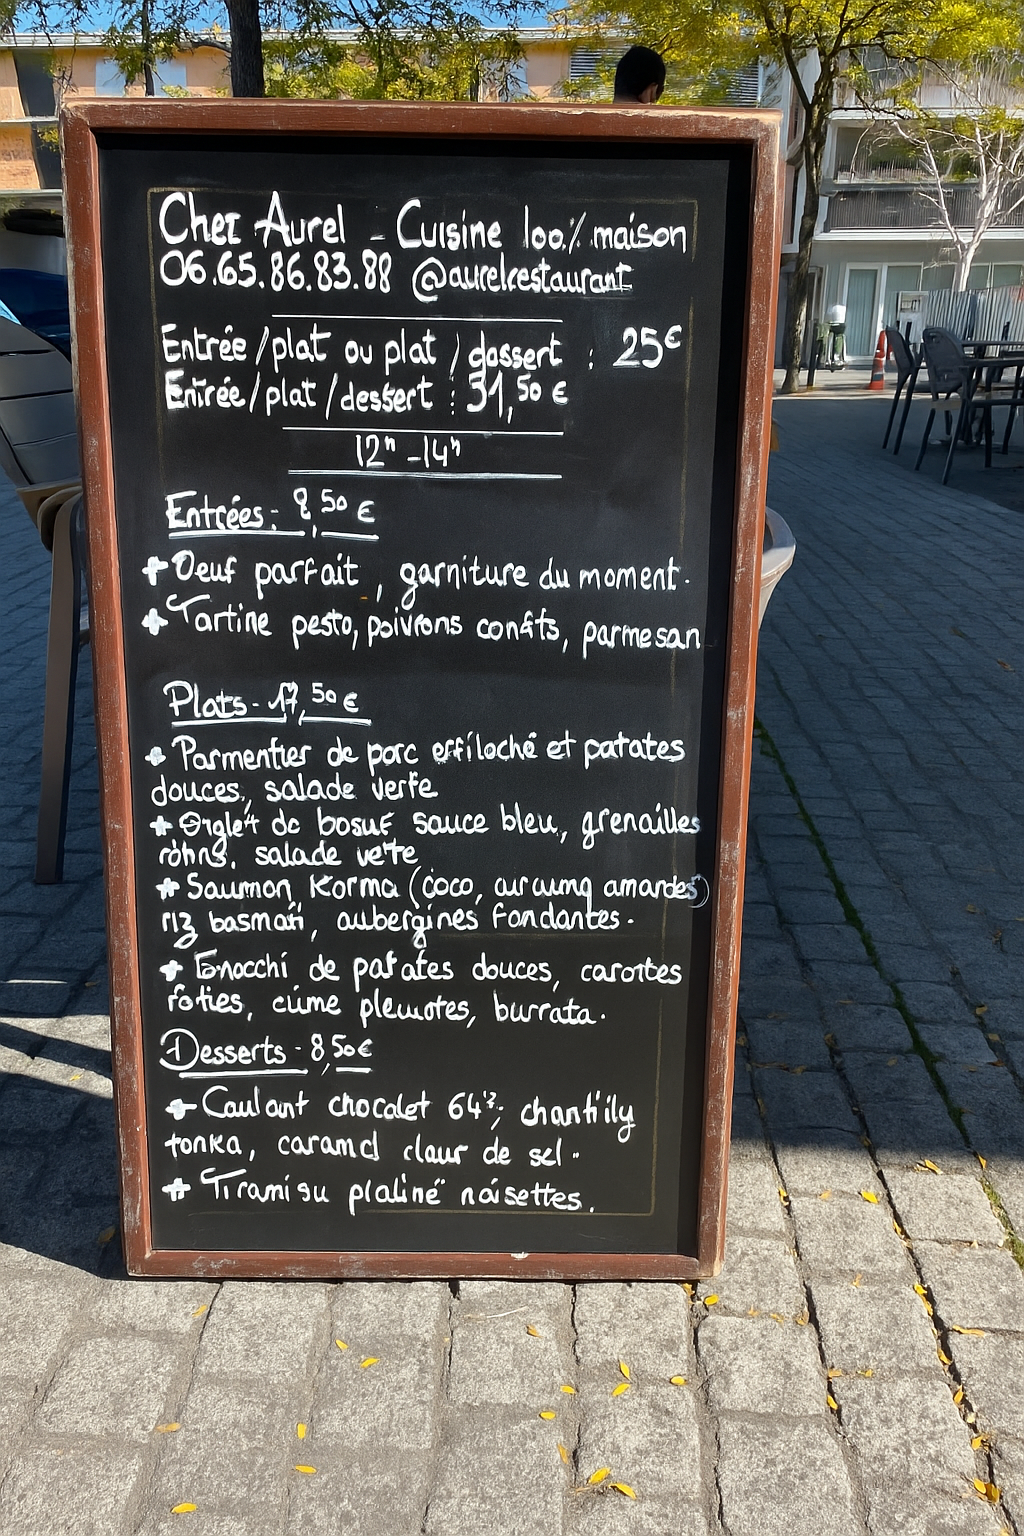 Chez Aurel - Cuisine 100% maison
06.65.86.83.88 @aurelrestaurant
Entrée/plat ou plat/dassert : 25€
Entrée/plat/dessert : 31,50 €
12h-14h
Entrées: 8,50 €
+ Oeuf parfait, garniture du moment.
+ Tartine pesto, poivrons confits, parmesan
Plats - 17,50 €
+ Parmentier de porc effiloché et patates
douces, salade verte
+ de sauce bleu, grenailles
salade
+ Saumon Korma (coco, amandes)
riz basmati, aubergines fondantes.
+ Gnocchi de patates douces, carottes
roties, burrata.
Desserts - 8,50€
+ Coulant chocolat 64%, chantilly
tonka, de sel.
+ Tiramisu praliné noisettes.